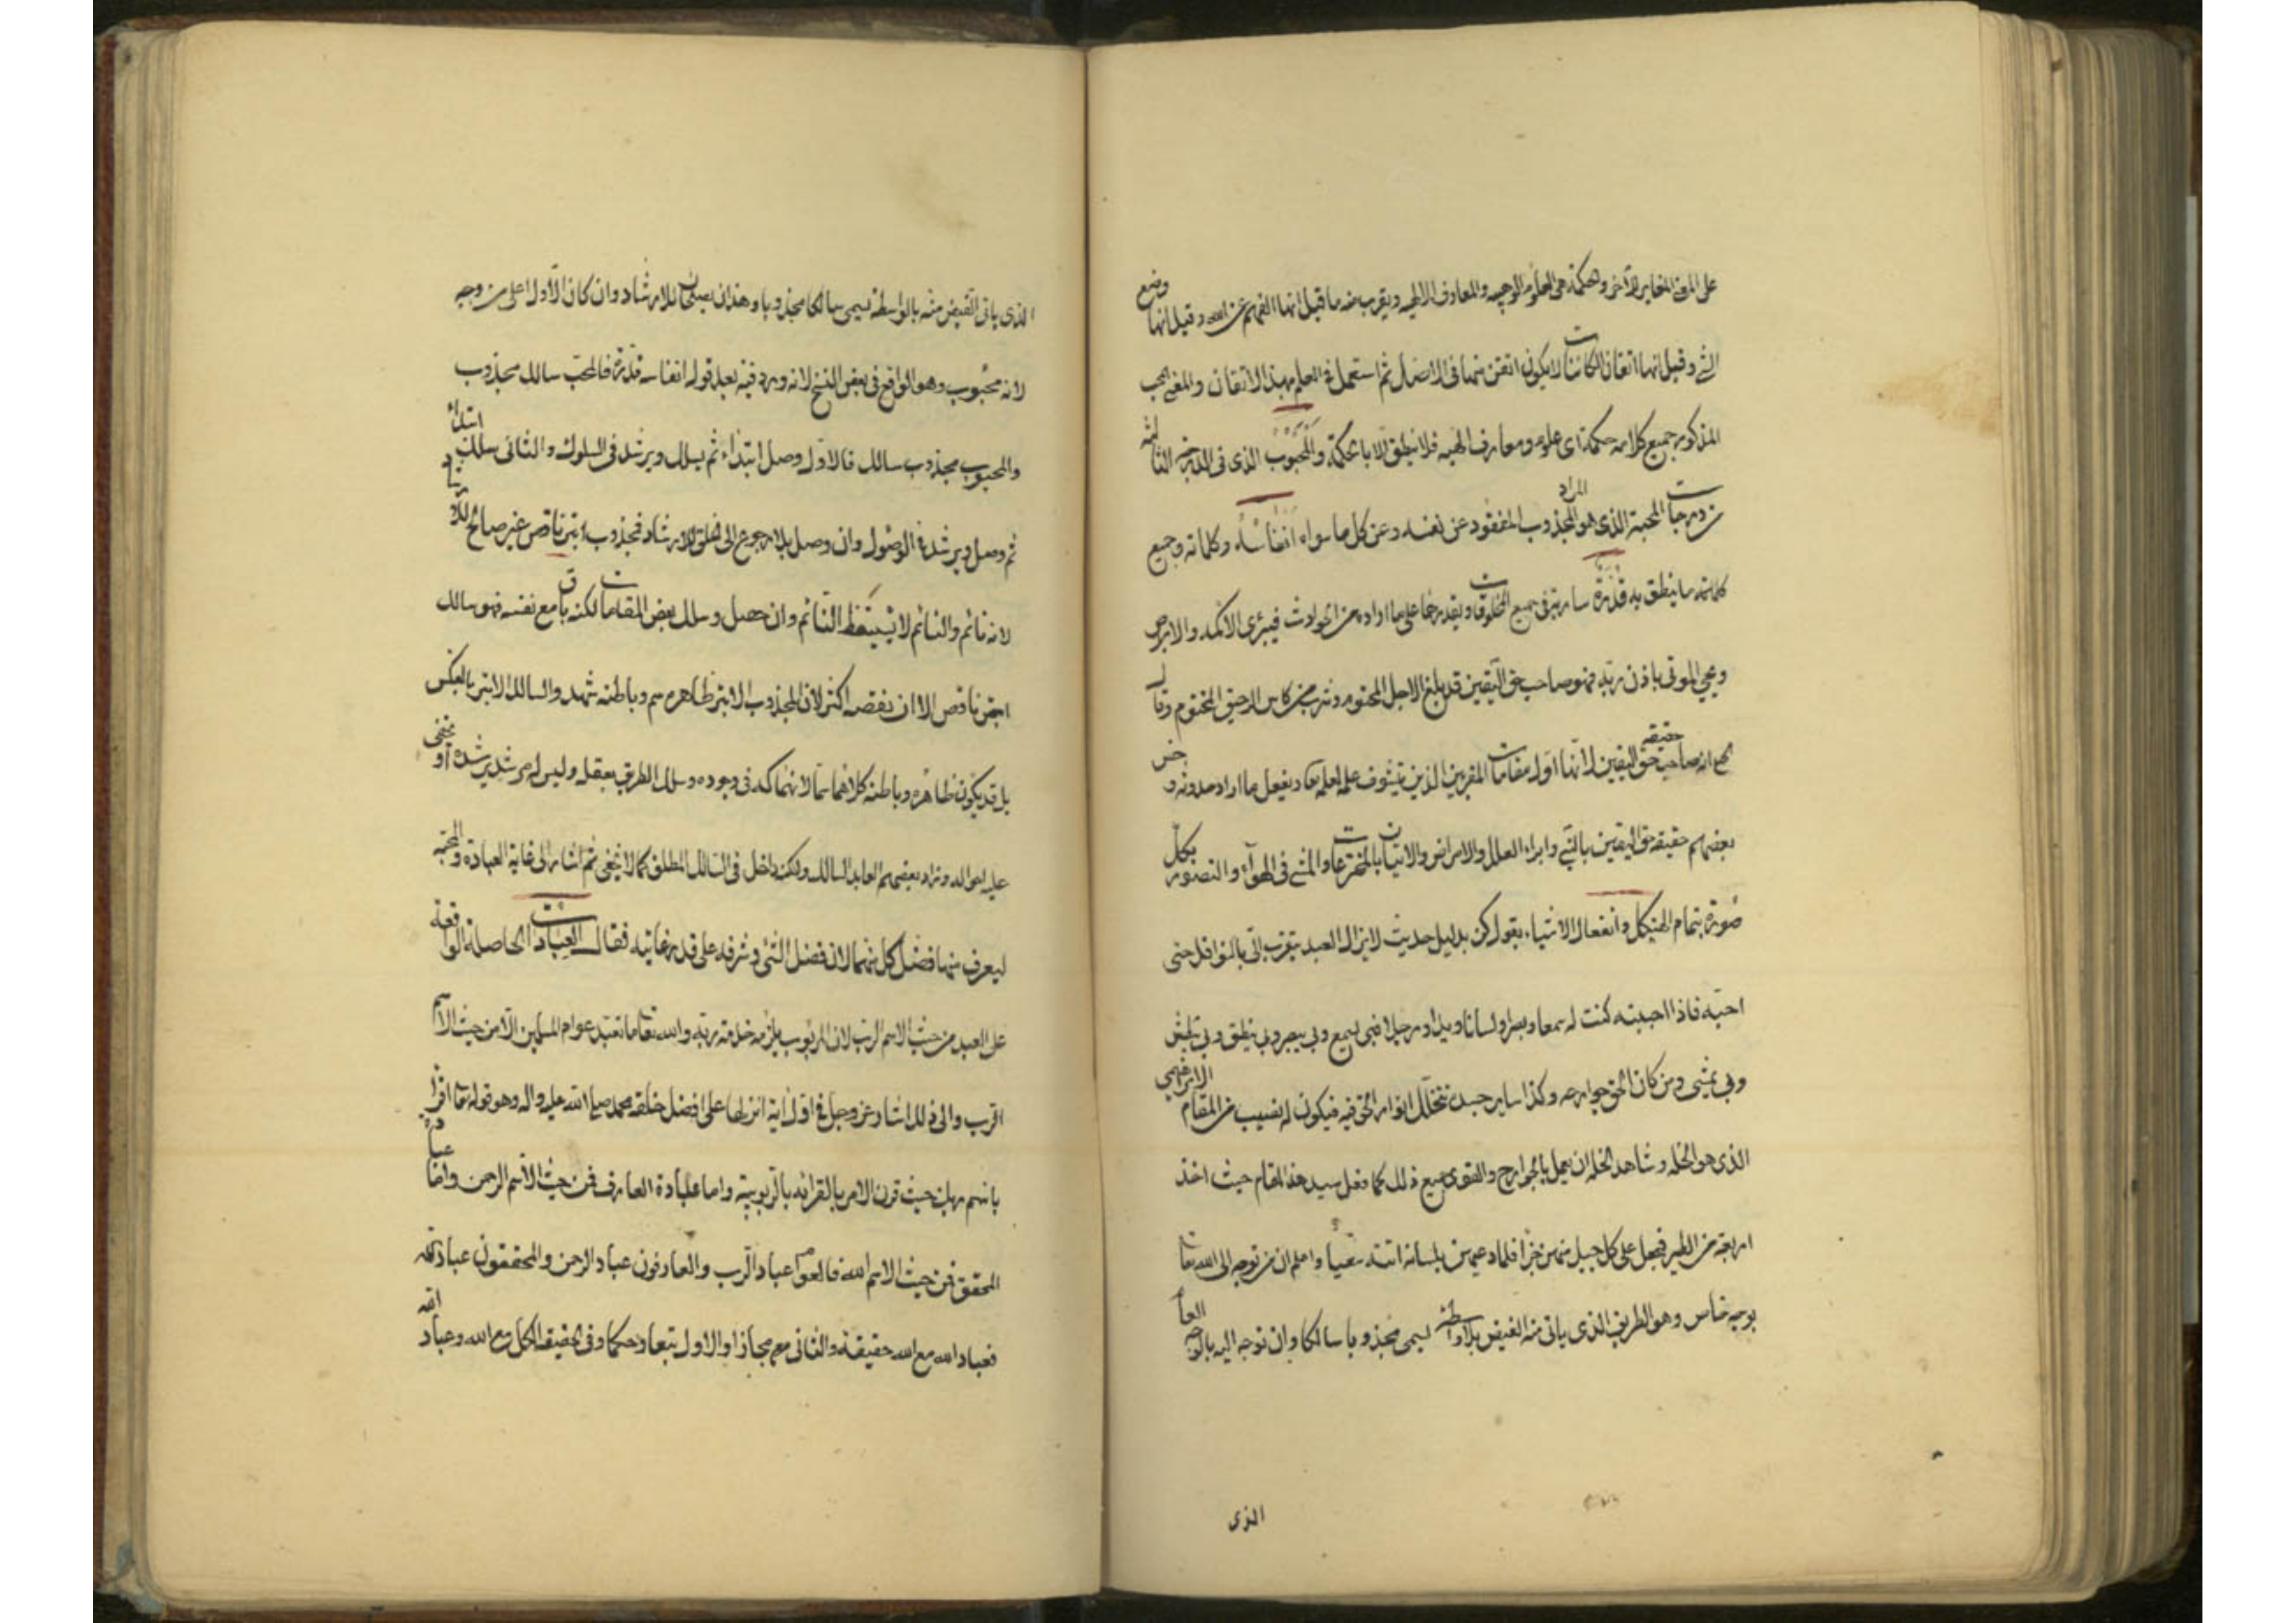 على المعنى المغاير للآخر والحكمة هى العلوم الوهبيه والمعارف الالهيه ويقرب منه ما قيل انها الفهم عن الله وقيل انها وضع
الشئ وقيل انها اتقان الكائنات لا يكون اتقن منها فى الاصل ثم استعمل فى العلم بهذا الاتقان والمعنى
المذكور جميع كلامه حكمة اى علوم ومعارف الهيه فلا ينطق الا بالحكمة والمحبوب الذى فى الدرجة الثالثة
من درجات المحبة الذى هو المراد المجذوب المفقود عن نفسه وعن كل ما سواه انفاسه وكلماته وجميع
كلامه ما ينطق به قدرة سارية فى جميع المخلوقات ويقدر بها على ما اراده من الحوادث فيبرئ الاكمه والابرص
ويحيى الموتى باذن ربه فهو صاحب حق اليقين قد بلغ الاجل المحتوم وشرب من كاس الرحيق المختوم وقال
انه صاحب حقيقة حق اليقين لانها اول مقامات المقربين الذين علمه لعلمه ويفعل ما اراد
بعضهم حقيقة حق اليقين وابراء العلل والامراض والاتيان بالمخترعات والمشى فى الهوآء والتصور بكل
صورة بتمام الهيكل وانفعال الاشياء بقول كن بدليل حديث لا يزال العبد يتقرب الىّ بالنوافل حتى
احبّه فاذا احببته كنت له سمعا وبصرا ولسانا ويدا ورجلا فبى يسمع وبى يبصر وبى ينطق وبى يبطش
وبى يمشى ومن كان الحق جوارحه وكذا ساير جسده تتخلّل انوار الحق فيه فيكون له نصيب من المقام الابراهيمى
الذى هو الخله وشاهد الخله ان يعمل بالجوارح والقوى جميع ذلك كما فعل سيد هذا المقام حيث اخذ
اربعة من الطير فجعل على كل جبل منهن جزءا فلما دعيهن بلسانه اتته سعيا واعلم ان من توجه الى الله تعا
بوجه خاص وهو الطريق الذى ياتى منه الفيض بلا واسطة يسمى مجذوبا سالكا وان توجه اليه بالوجه العام
الذى
الذى ياتى الفيض منه بالواسطة يسمى سالكا مجذوبا وهذان يصلحان للارشاد وان كان الاول اعلى من وجه
لانه محبوب وهو الواقع فى بعض النسخ لانه ورد فيه بعد قوله انفاسه قدرة فالمحب سالك مجذوب
والمحبوب مجذوب سالك فالاول وصل ابتداء ثم يسلك ويرشد فى السلوك والثانى سلك ابتداء
ثم وصل ويرشد فى الوصول وان وصل بلا رجوع الى الخلق للارشاد فمجذوب ابتر ناقص غير صالح للارشاد
لانه نائم والنائم لا يستيقظ النائم وان حصل وسلك بعض المقامات لكنه باق مع نفسه فهو سالك
ابتر ناقص الا ان نقصه اكثر لان المجذوب الابتر ظاهره سم وباطنه شهد والسالك الابتر بالعكس
بل قد يكون ظاهره وباطنه كلاهما سما لانهماكه فى وجوده وسلك الطريق بعقله وليس له مرشد يرشده او
عليه احواله وزاد بعضهم العابد السالك ولكنه داخل فى السالك المطلق كما لا يخفى ثم اشار الى غاية العبادة والمحبة
ليعرف منها فضل كل منهما لان فضل الشئ وشرفه على قدر غايته فقال العبادات الحاصلة الواقعة
على العبد من حيث الاسم الرب لان المربوب يلزمه خدمة ربه والله تعا ما تعبد عوام المسلمين الا من حيث الاسم
اقرب والى ذلك اشار عز وجل فى اول اية انزلها على افضل خلقه محمد صلى الله عليه واله وهو قوله تعا اقرا
باسم ربك حيث قرن الامر بالقرائه بالربوبية واما عبادة العارف فمن حيث الاسم الرحمن واما عبادة
المحقق فمن حيث الاسم الله فالعوام عباد الرب والعارفون عباد الرحمن والمحققون عباد الله
فعباد الله مع الله حقيقة والثانى معه مجازا والاول تبعا وحكما وفى الحقيقة الكل مع الله وعباد الله